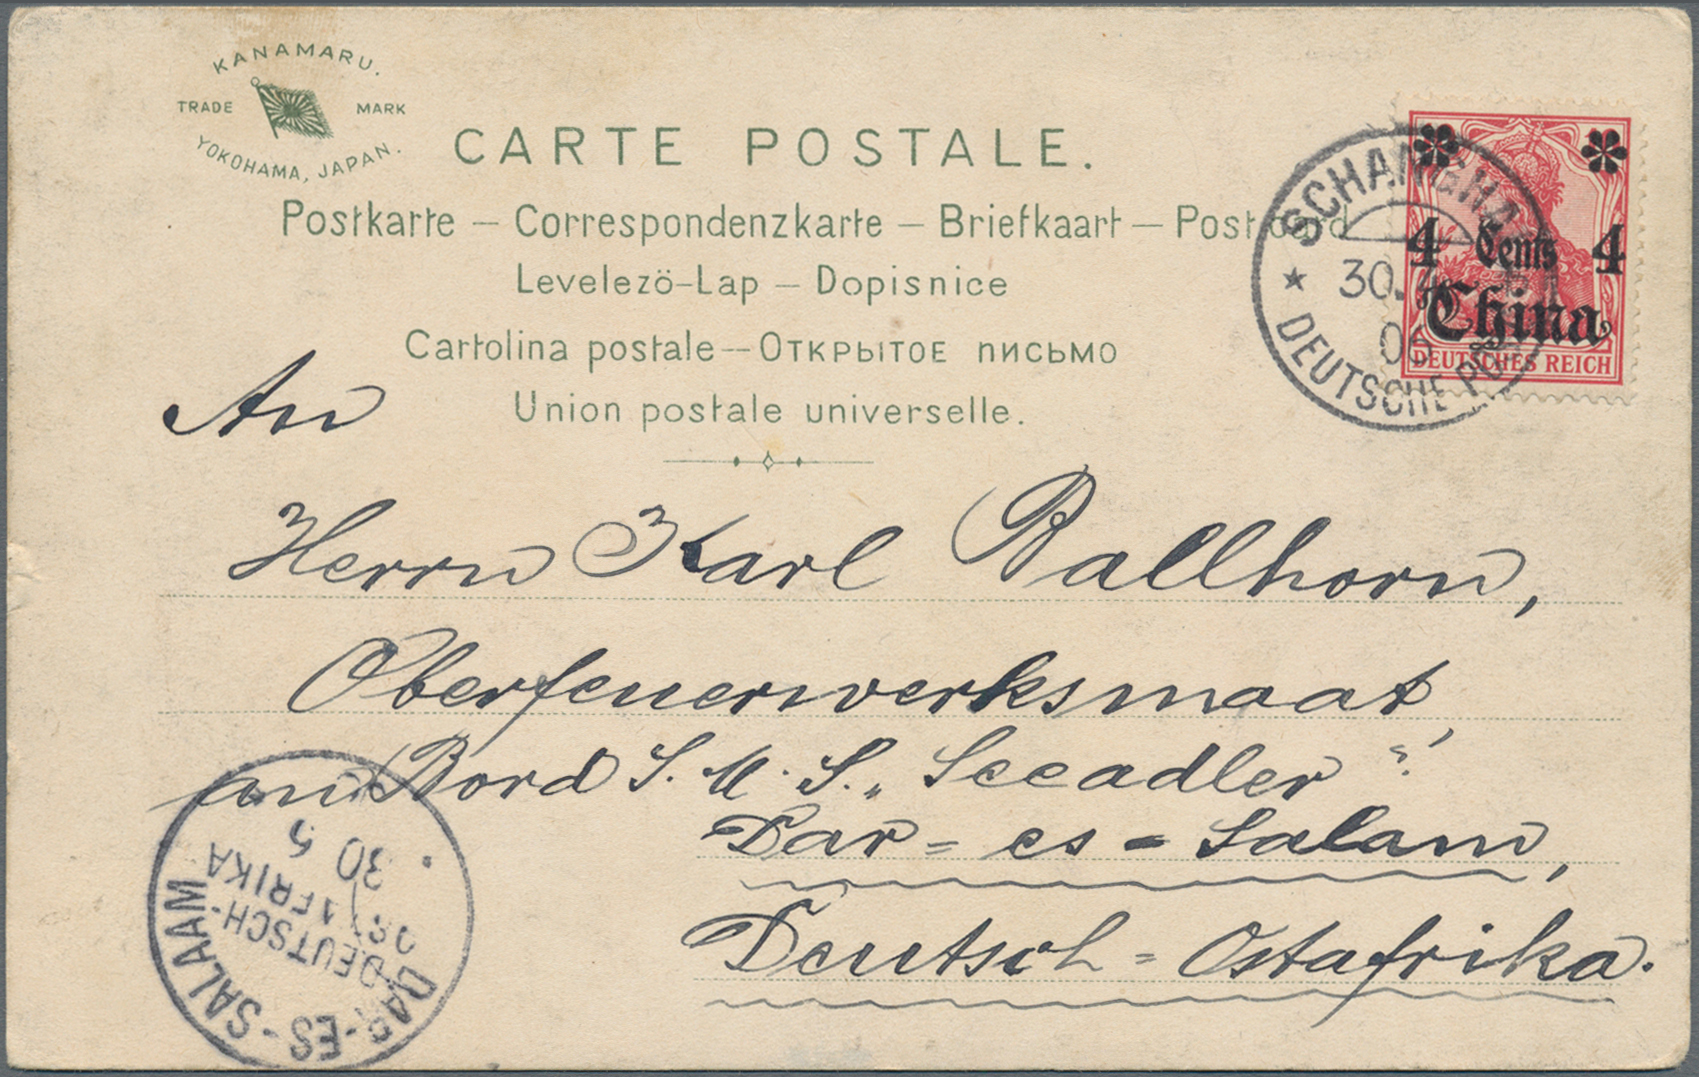 KANAMARU.
TRADE MARK
YOKOHAMA, JAPAN.
CARTE POSTALE.
Postkarte – Correspondenzkarte – Briefkaart – Postcard
Levelezö-Lap – Dopisnice
Cartolina postale – Открытое письмо
Union postale universelle.
SCHANGHAI
30.
06
DEUTSCHE PO
4 Cents 4
China
DEUTSCHES REICH
An
Herrn Karl Ballhorn,
Oberfeuerwerksmaat,
an Bord S. M. S. „Seeadler“.
Dar-es-Salam,
Deutsch-Ostafrika.
DAR-ES-SALAAM
DEUTSCH-
AFRIKA
30 5